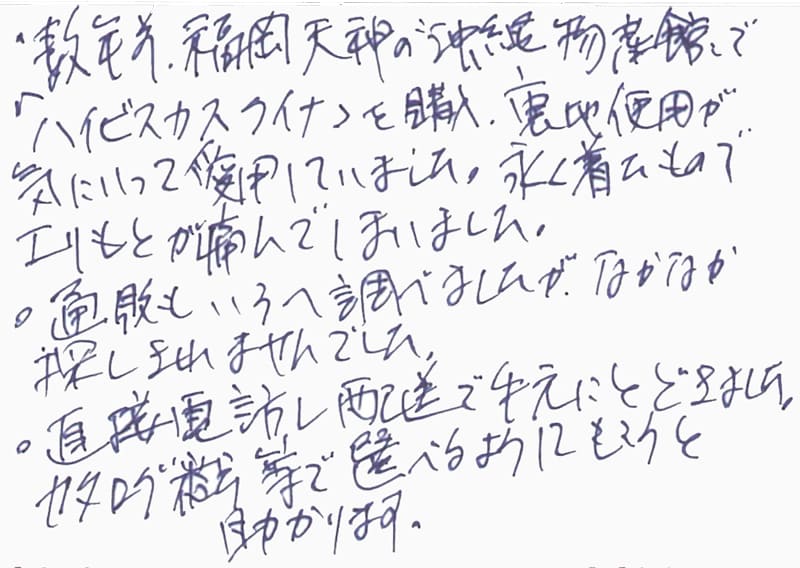 ・数年前、福岡天神の沖縄物産館で
「ハイビスカスライナーを購入、裏地使用が
気にいって愛用していました。永く着たもので
エリもとが痛んでしまいました。
。通販もいろいろ調べましたが、なかなか
探しきれませんでした。
。直接電話し配送で手元にとどきました。
カタログ 等で選べるようにもらうと
助かります。